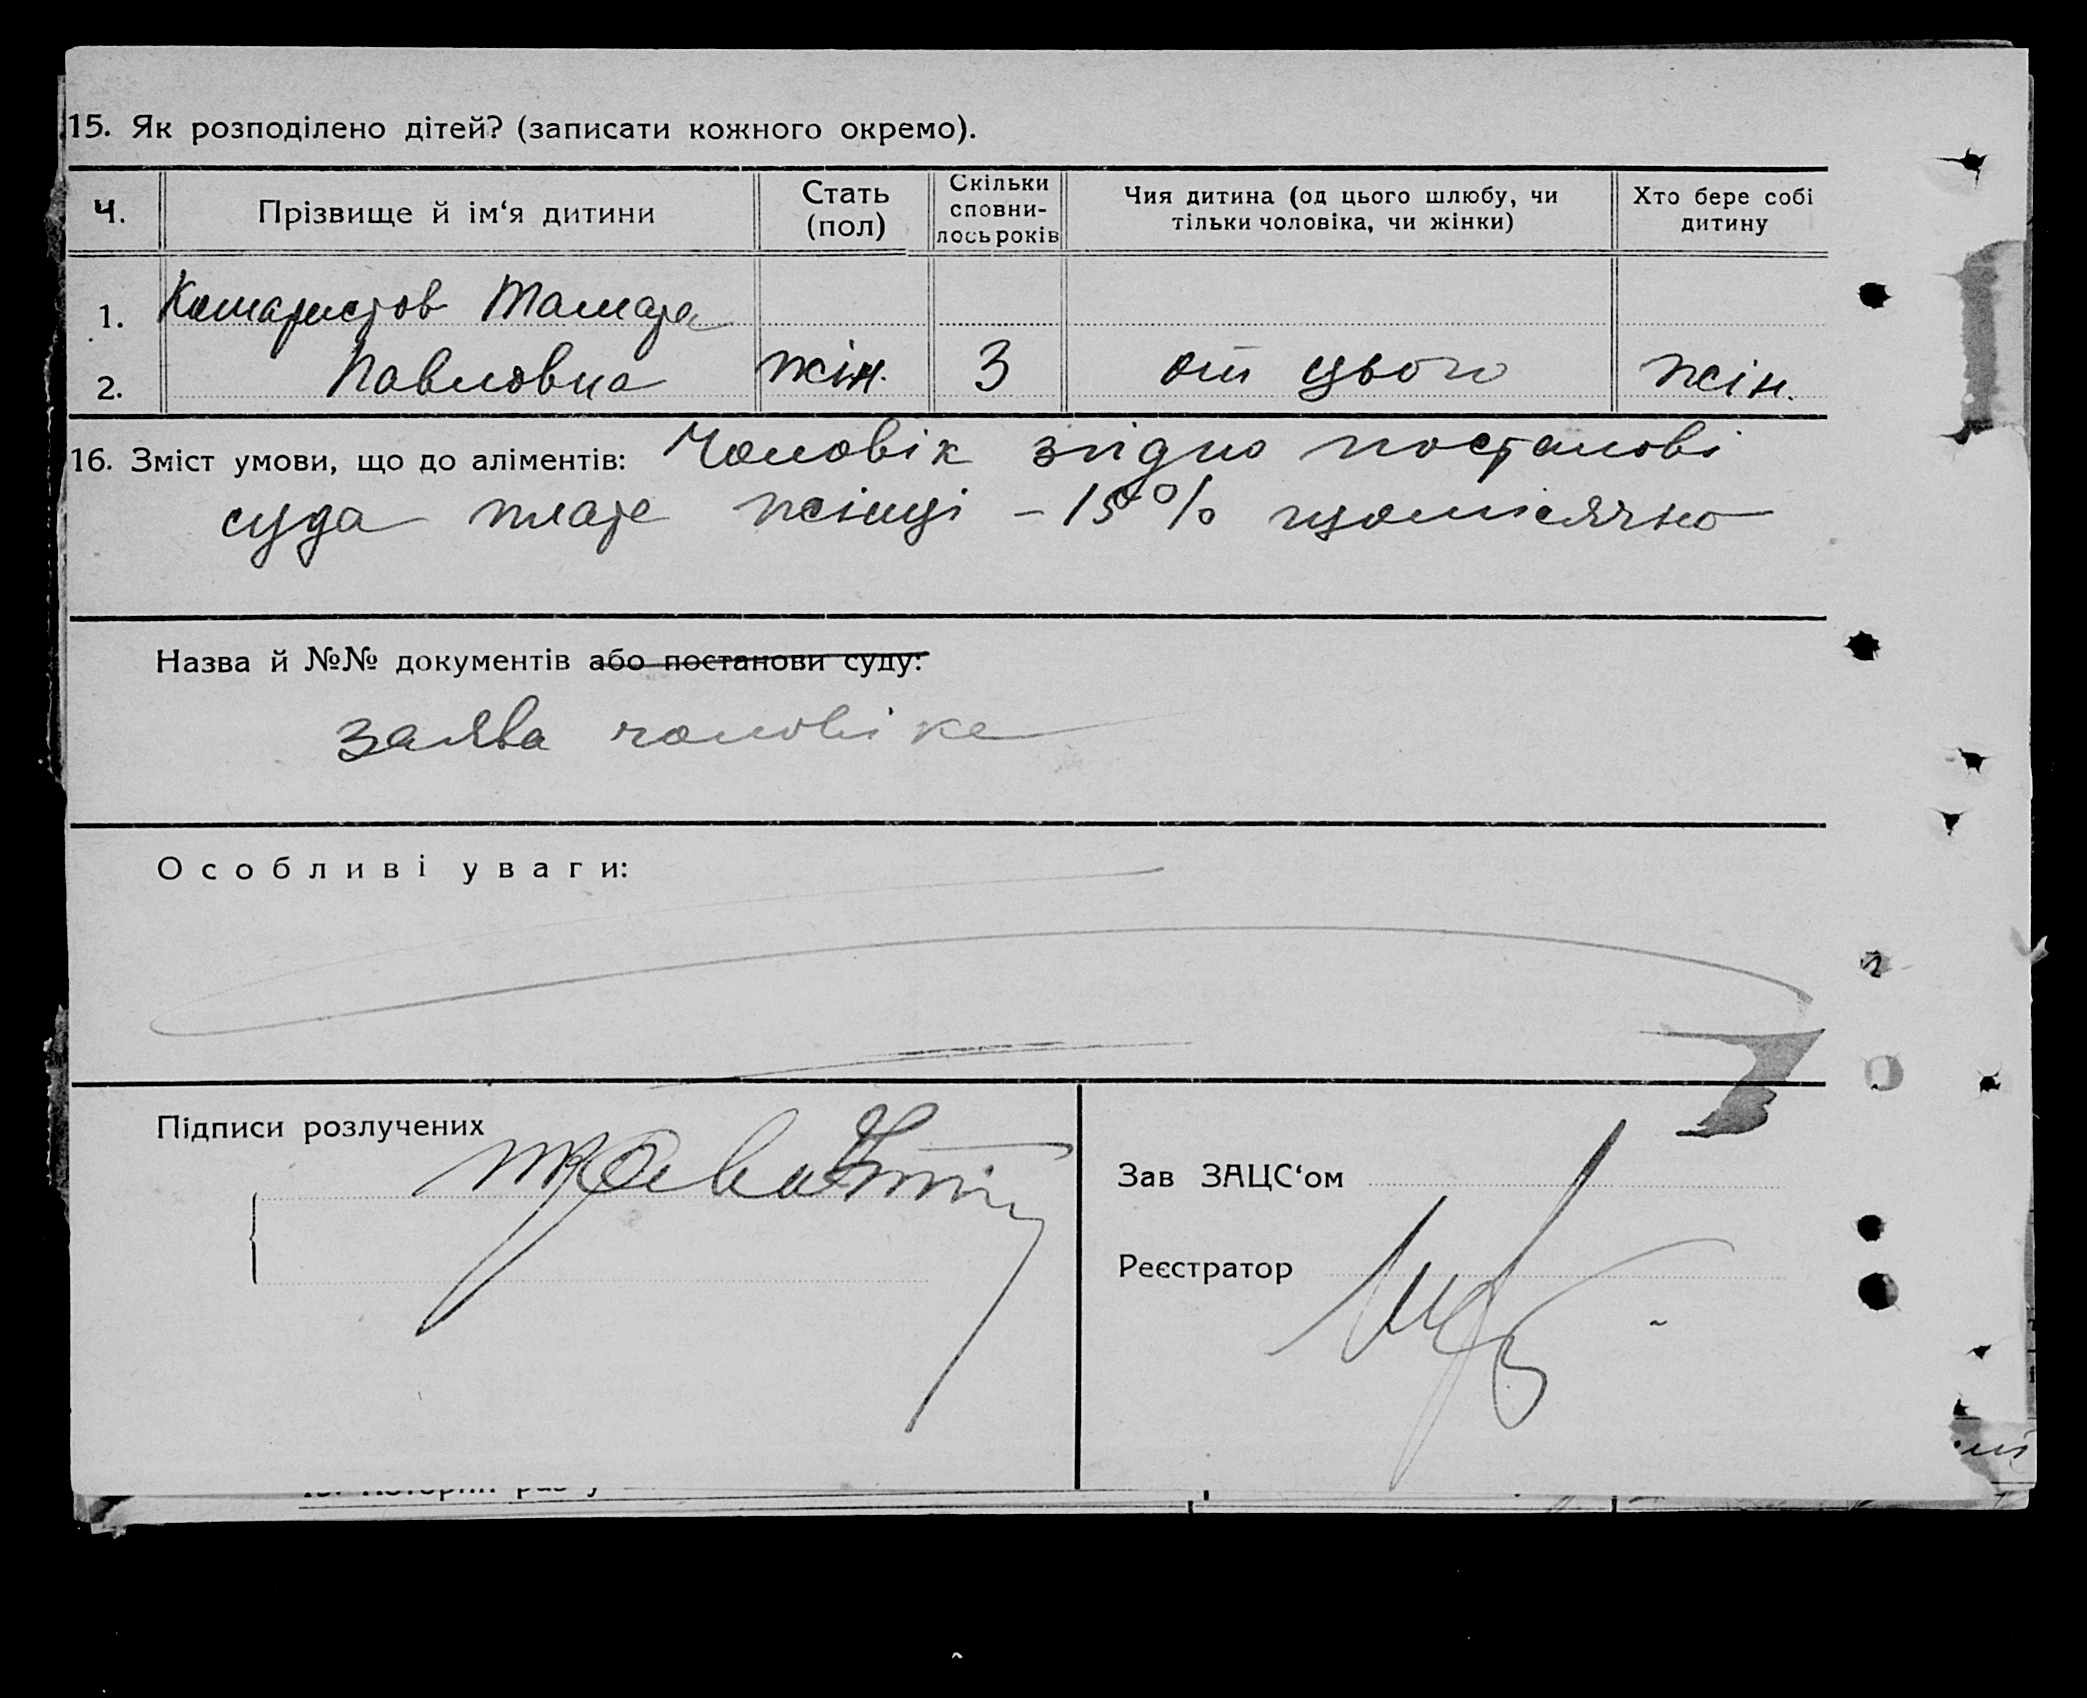 15. Як розподілено дітей? (записати кожного окремо).
Ч. Прізвище й ім‘я дитини Стать (пол) Скільки сповни-лось років Чия дитина (од цього шлюбу, чи тільки чоловіка, чи жінки) Хто бере собі дитину
1. Тамара
2. Павловна жін. 3 от цього жін.
16. Зміст умови, що до аліментів: Чоловік згідно постанові
суда плате жінці – 15% щомісячно
Назва й №№ документів або постанови суду:
заява чоловіка
Особливі уваги:
Підписи розлучених
Зав ЗАЦС‘ом
Реєстратор